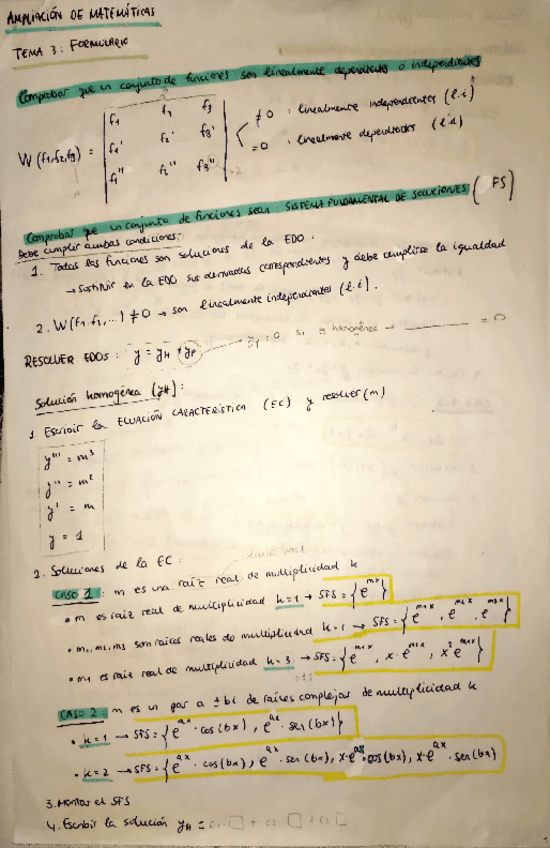 AMPLIACIÓN DE MATEMÁTICAS
TEMA 3: FORMULARIO
Comprobar que un conjunto de funciones son linealmente dependientes o independientes
W(f1,f2,f3) = | f1 f2 f3 | ≠0 : linealmente independientes (l.i)
| f1' f2' f3' | =0 : linealmente dependientes (l.d)
| f1'' f2'' f3'' |
Comprobar que un conjunto de funciones sean SISTEMA FUNDAMENTAL DE SOLUCIONES (FS)
Debe cumplir ambas condiciones:
1. Todas las funciones son soluciones de la EDO.
→ Sustituir en la EDO sus derivadas correspondientes y debe cumplirse la igualdad
2. W(f1,f2,...) ≠ 0 → son linealmente independientes (l.i).
RESOLVER EDOS: y = yH + yP yP = 0 si es homogénea → = 0
Solución homogénea (yH):
1. Escribir la ECUACIÓN CARACTERÍSTICA (EC) y resolver (m)
y''' = m³
y'' = m²
y' = m
y = 1
2. Soluciones de la EC:
CASO 1: m es una raíz real de multiplicidad k
• m es raíz real de multiplicidad k=1 → SFS = {e^mx}
• m1, m2, m3 son raíces reales de multiplicidad k=1 → SFS = {e^m1x, e^m2x, e^m3x}
• m1 es raíz real de multiplicidad k=3 → SFS = {e^m1x, x·e^m1x, x²e^m1x}
CASO 2: m es un par a ± bi de raíces complejas de multiplicidad k
• k=1 → SFS = {e^ax · cos(bx), e^ax · sen(bx)}
• k=2 → SFS = {e^ax · cos(bx), e^ax · sen(bx), x·e^ax·cos(bx), x·e^ax · sen(bx)}
3. Montar el SFS
4. Escribir la solución yH = C1·□ + C2·□ + C3□